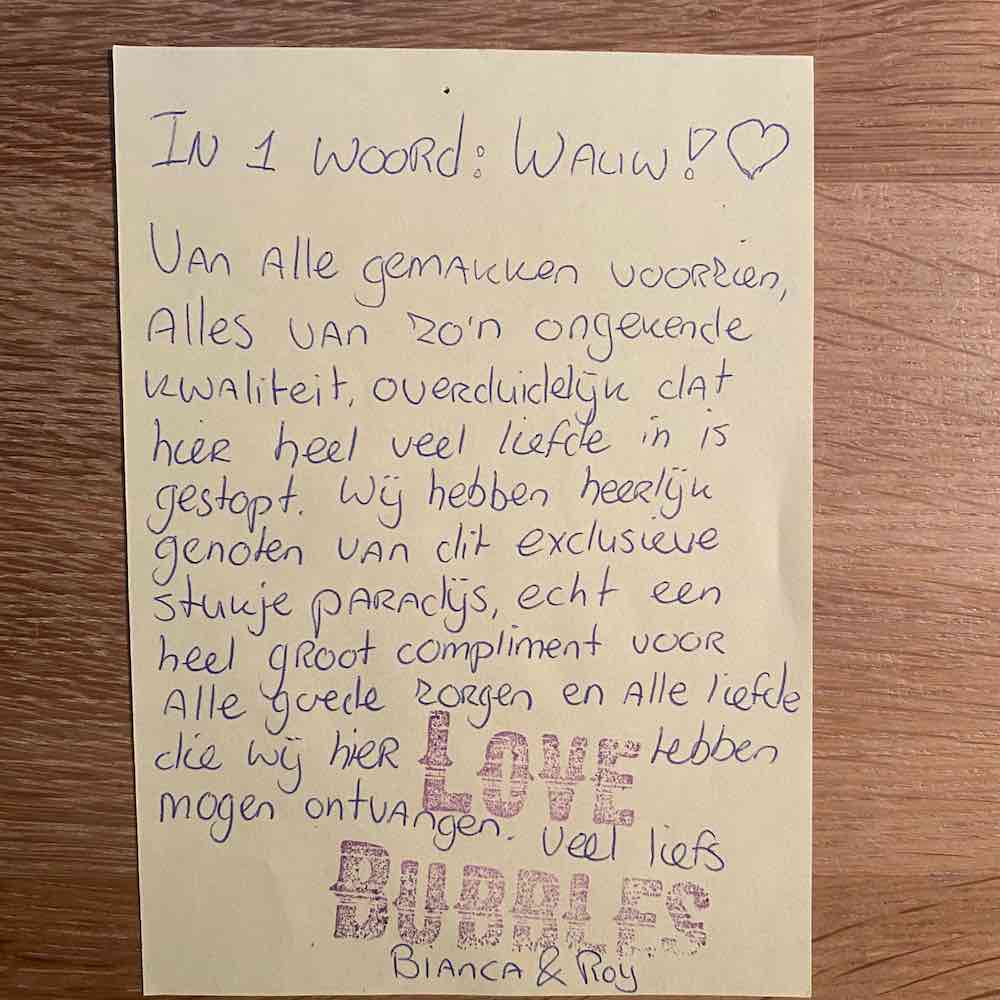 In 1 woord: Wauw! ♡
Van alle gemakken voorzien,
alles van zo'n ongekende
kwaliteit, overduidelijk dat
hier heel veel liefde in is
gestopt. Wij hebben heerlijk
genoten van dit exclusieve
stukje paradijs, echt een
heel groot compliment voor
alle goede zorgen en alle liefde
die wij hier hebben
mogen ontvangen. Veel liefs
LOVE
BUBBLES
Bianca & Roy